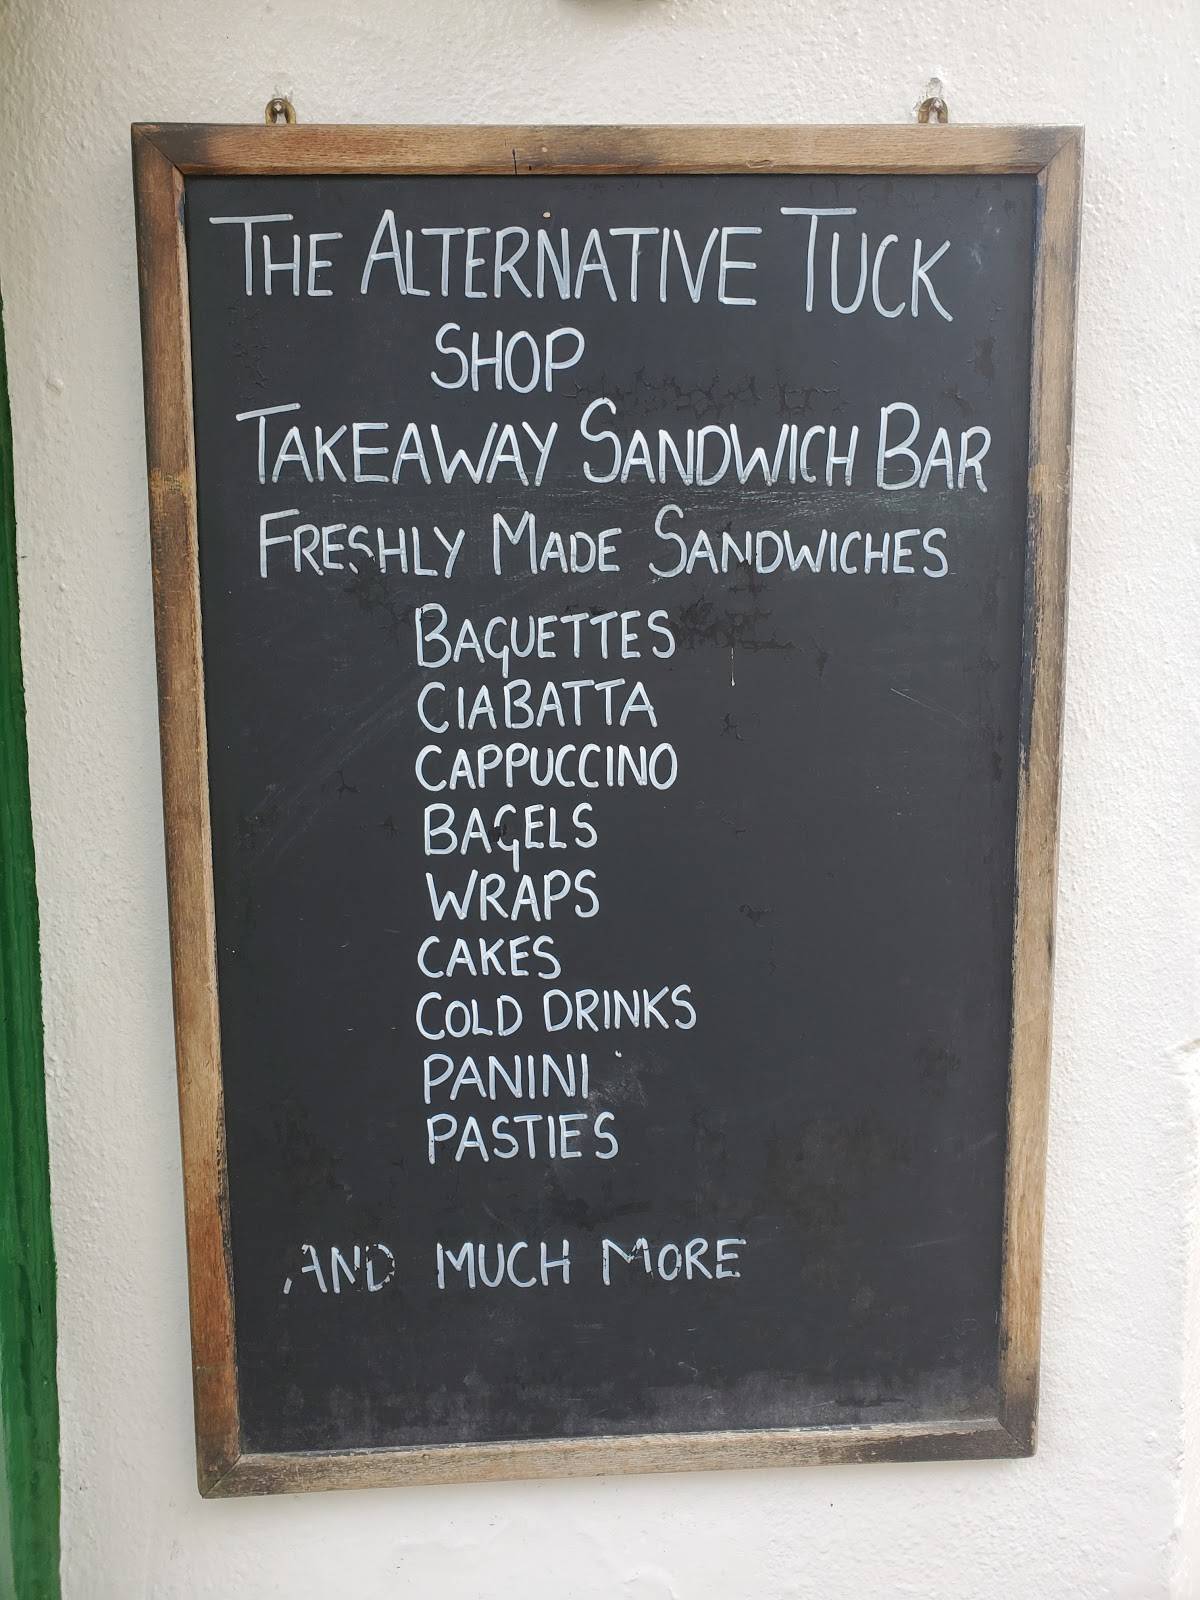 THE ALTERNATIVE TUCK
SHOP
TAKEAWAY SANDWICH BAR
FRESHLY MADE SANDWICHES
BAGUETTES
CIABATTA
CAPPUCCINO
BAGELS
WRAPS
CAKES
COLD DRINKS
PANINI
PASTIES
AND MUCH MORE